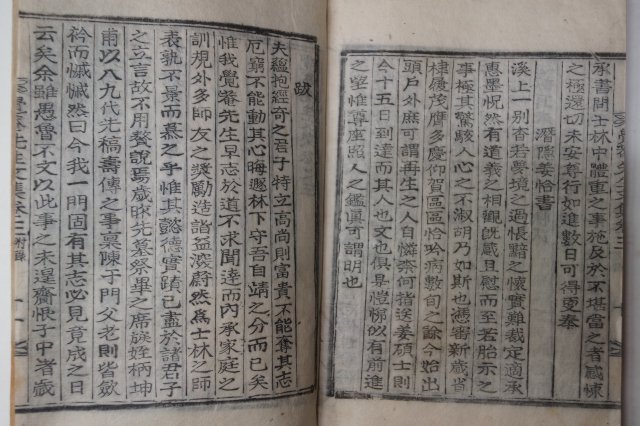 承書間士林中體重之事施及於不堪當之者感悚
之極還切未安尊行如進數日可得更奉
潛隱姜恰書
溪上一別杳若夢境之過悵黯之懷實難裁定適承
惠墨怳然有道義之相觀旣感且慰而至若胎示之
事極其驚駭人心之不淑胡乃如斯也憑審新歲肖
棣履茂膺多慶仰賀區區恰吟病數旬之餘今始出
頭戶外庶可謂再生之人自憐柰何指送姜碩士則
今十五日到達主其人也文也俱是愷悌似有前進
之望惟尊座照人之鑑眞可謂明也
跋
夫蘊抱經奇之君子特立高尚則富貴不能奪其志
厄窮不能動其心晦遯林下守吾自靖之分而已矣
惟我覺菴先生早志於道不求聞達而內承家庭之
訓規外多師友之奬勵造詣益深蔚然爲士林之師
表孰不景而慕之乎惟其懿德實蹟已盡於諸君子
之立言故不用贅說焉歲昨先墓祭畢之席族姪柄坤
甫以八九代先稿壽傳之事稟陳于門父老則皆斂
衿而慽慽然曰今我一門固有其志必見竟成之日
云矣余雖愚魯不文以此事之未遑齎恨于中者歲